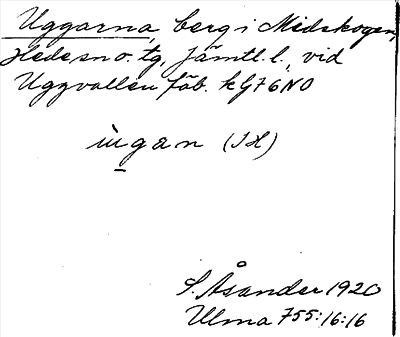 Uggarna, berg i Midskogen,
Hede sn o. tg, Jämtl. l., vid
Uggvallen fäb. kg 76 NO
ùgan (IH)
S. Åsander 1920
Ulma 755:16:16